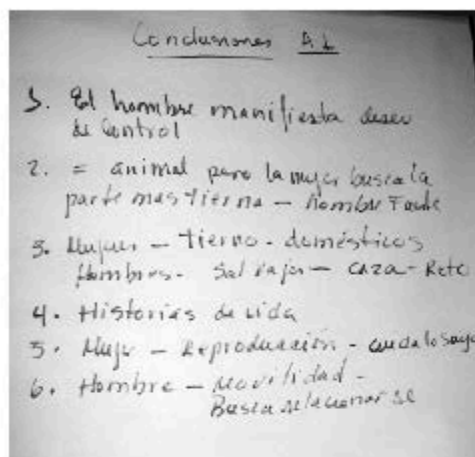 Conclusiones A.L
1. El hombre manifiesta deseo
de Control
2. = animal pero la mujer busca la
parte mas tierna – hombre Fuerte
3. Mujeres – tierno - domésticos
Hombres - Salvajes – caza - Reto
4. Historias de vida
5. Mujer – Reproducción - cuida lo suyo
6. Hombre – movilidad -
Busca relacionarse